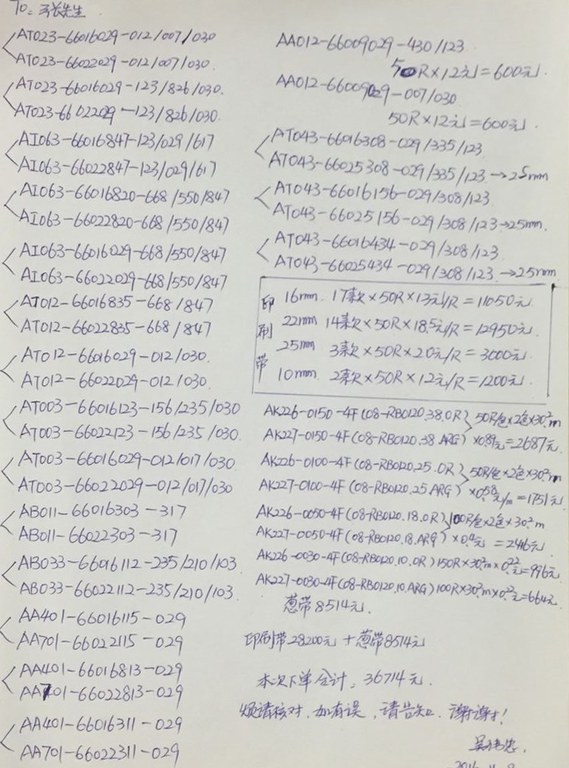 To: 张先生
AT023-66016029-012/007/030
AT023-66022029-012/007/030
AT023-66016029-123/826/030
AT023-66022029-123/826/030
AI063-66016847-123/029/617
AI063-66022847-123/029/617
AI063-66016820-668/550/847
AI063-66022820-668/550/847
AI063-66016029-668/550/847
AI063-66022029-668/550/847
AT012-66016835-668/847
AT012-66022835-668/847
AT012-66016029-012/030
AT012-66022029-012/030
AT003-66016123-156/235/030
AT003-66022123-156/235/030
AT003-66016029-012/017/030
AT003-66022029-012/017/030
AB011-66016303-317
AB011-66022303-317
AB033-66016112-235/210/103
AB033-66022112-235/210/103
AA401-66016115-029
AA701-66022115-029
AA401-66016813-029
AA701-66022813-029
AA401-66016311-029
AA701-66022311-029
AA012-66009029-430/123
50R×12元=600元.
AA012-66009029-007/030
50R×12元=600元.
AT043-66016308-029/335/123
AT043-66025308-029/335/123→25mm
AT043-66016156-029/308/123
AT043-66025156-029/308/123→25mm.
AT043-66016434-029/308/123.
AT043-66025434-029/308/123.→25mm
印刷带
16mm. 17条款×50R×13元/R=11050元.
22mm 14条款×50R×18.5元/R=12950元.
25mm 3条款×50R×20元/R=3000元
10mm. 2条款×50R×12元/R=1200元.
AK226-0150-4F(08-RB0120.38.0R) 50R/色×2色×30m
AK227-0150-4F(08-RB0120.38.ARG) ×0.89元=2687元.
AK226-0100-4F(08-RB0120.25.0R) 50R/色×2色×30m
AK227-0100-4F(08-RB0120.25.ARG) ×0.58元/m=1751元
AK226-0050-4F(08-RB0120.18.0R) 100R/色×2色×30m
AK227-0050-4F(08-RB0120.18.ARG) ×0.4元=2416元
AK226-0030-4F(08-RB0120.10.0R)150R×30m×0.22元=996元
AK227-0030-4F(08-RB0120.10.ARG)100R×30m×0.22元=664元
葱带8514元.
印刷带28200元+葱带8514元
本次下单合计, 36714元.
烦请核对,如有误,请告知,谢谢!